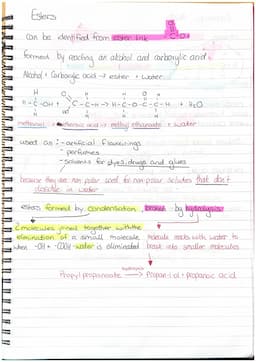 Esters
can be identified from ester link
formed by reacting an alcohol and carboxylic acid
Alcohol + Carboxylic acid → ester + water
H O H H O H
H - C - OH + C - C - H → H - C - O - C - C - H + H₂O
H H H H
methanol + ethanoic acid → methyl ethanoate + water
used as :- artificial flavourings
- perfumes
- solvents for dyes, drugs and glues
because they are non polar used for non-polar solutes that don't
dissolve in water
esters formed by condensation, broken by hydrolysis
2 molecules joined together with the
elimination of a small molecule
when -OH + -COOH water is eliminated
molecule reacts with water to
break into smaller molecules
hydrolysis
Propyl propanoate → Propan-1-ol + propanoic acid